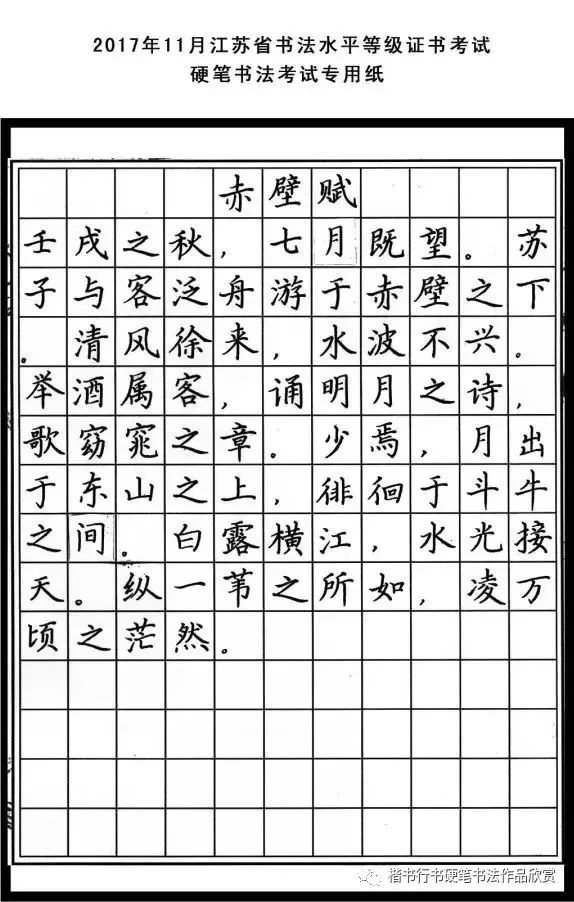 2017年11月江苏省书法水平等级证书考试
硬笔书法考试专用纸
赤壁赋
壬戌之秋，七月既望。苏
子与客泛舟游于赤壁之下
。清风徐来，水波不兴。
举酒属客，诵明月之诗，
歌窈窕之章。少焉，月出
于东山之上，徘徊于斗牛
之间。白露横江，水光接
天。纵一苇之所如，凌万
顷之茫然。
楷书行书硬笔书法作品欣赏